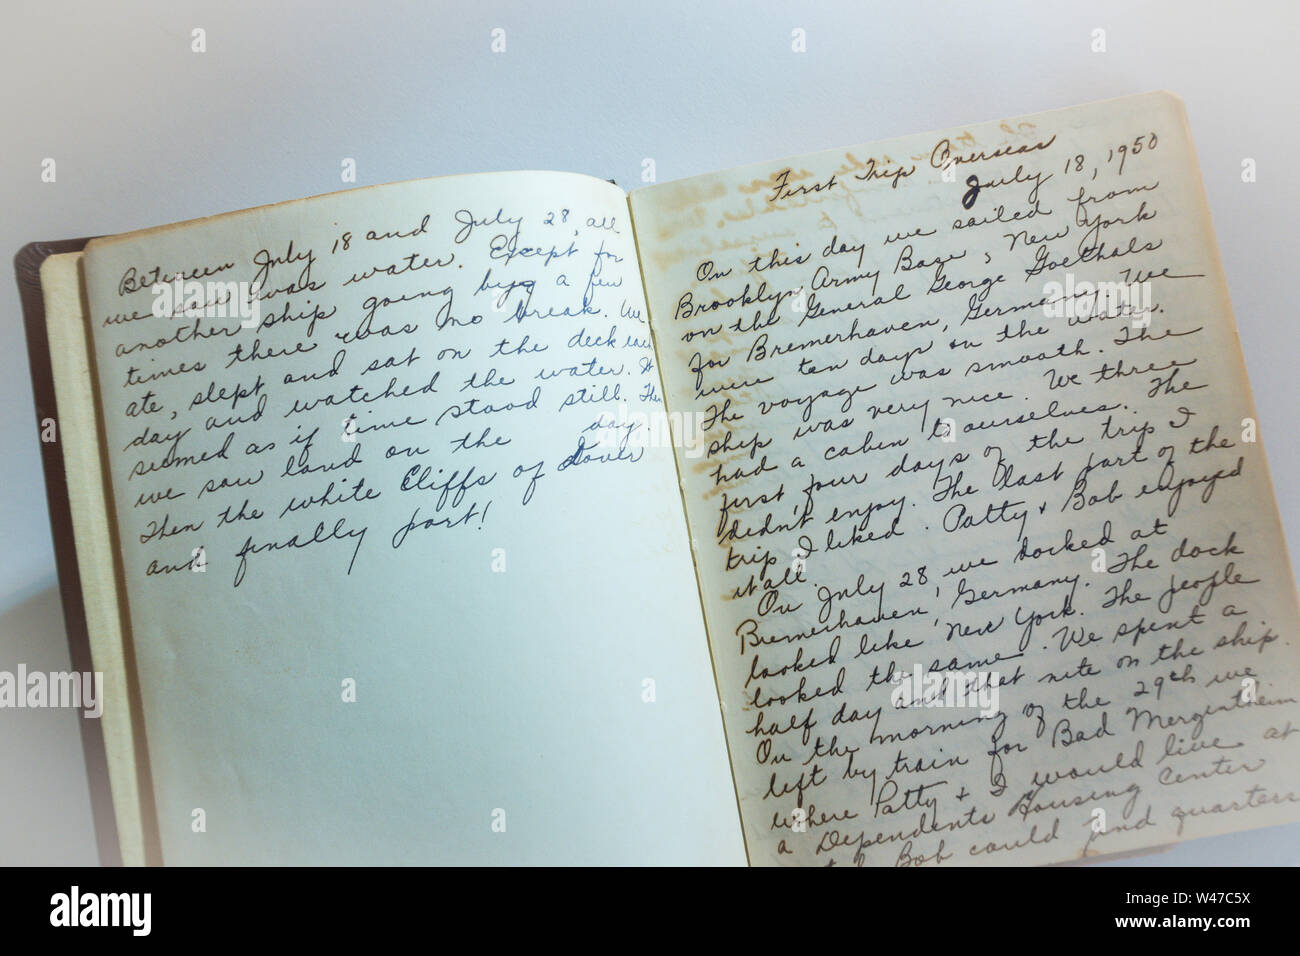 Between July 18 and July 28, all
we saw was water. Except for
another ship going by a few
times there was no break. We
ate, slept and sat on the deck each
day and watched the water. It
seemed as if time stood still. Then
we saw land on the day.
Then the white Cliffs of Dover
and finally port!
First Trip Overseas
July 18, 1950
On this day we sailed from
Brooklyn Army Base, New York
on the General George Goethals
for Bremerhaven, Germany. We
were ten days on the water.
The voyage was smooth. The
ship was very nice. We three
had a cabin to ourselves. The
first four days of the trip I
didn't enjoy. The last part of the
trip I liked. Patty & Bob enjoyed
it all.
On July 28, we docked at
Bremerhaven, Germany. The dock
looked like New York. The people
looked the same. We spent a
half day and that nite on the ship.
On the morning of the 29th we
left by train for Bad Mergentheim
where Patty & I would live at
a Dependents Housing Center
Bob could find quarters
alamy
Image ID: W47C5X
www.alamy.com